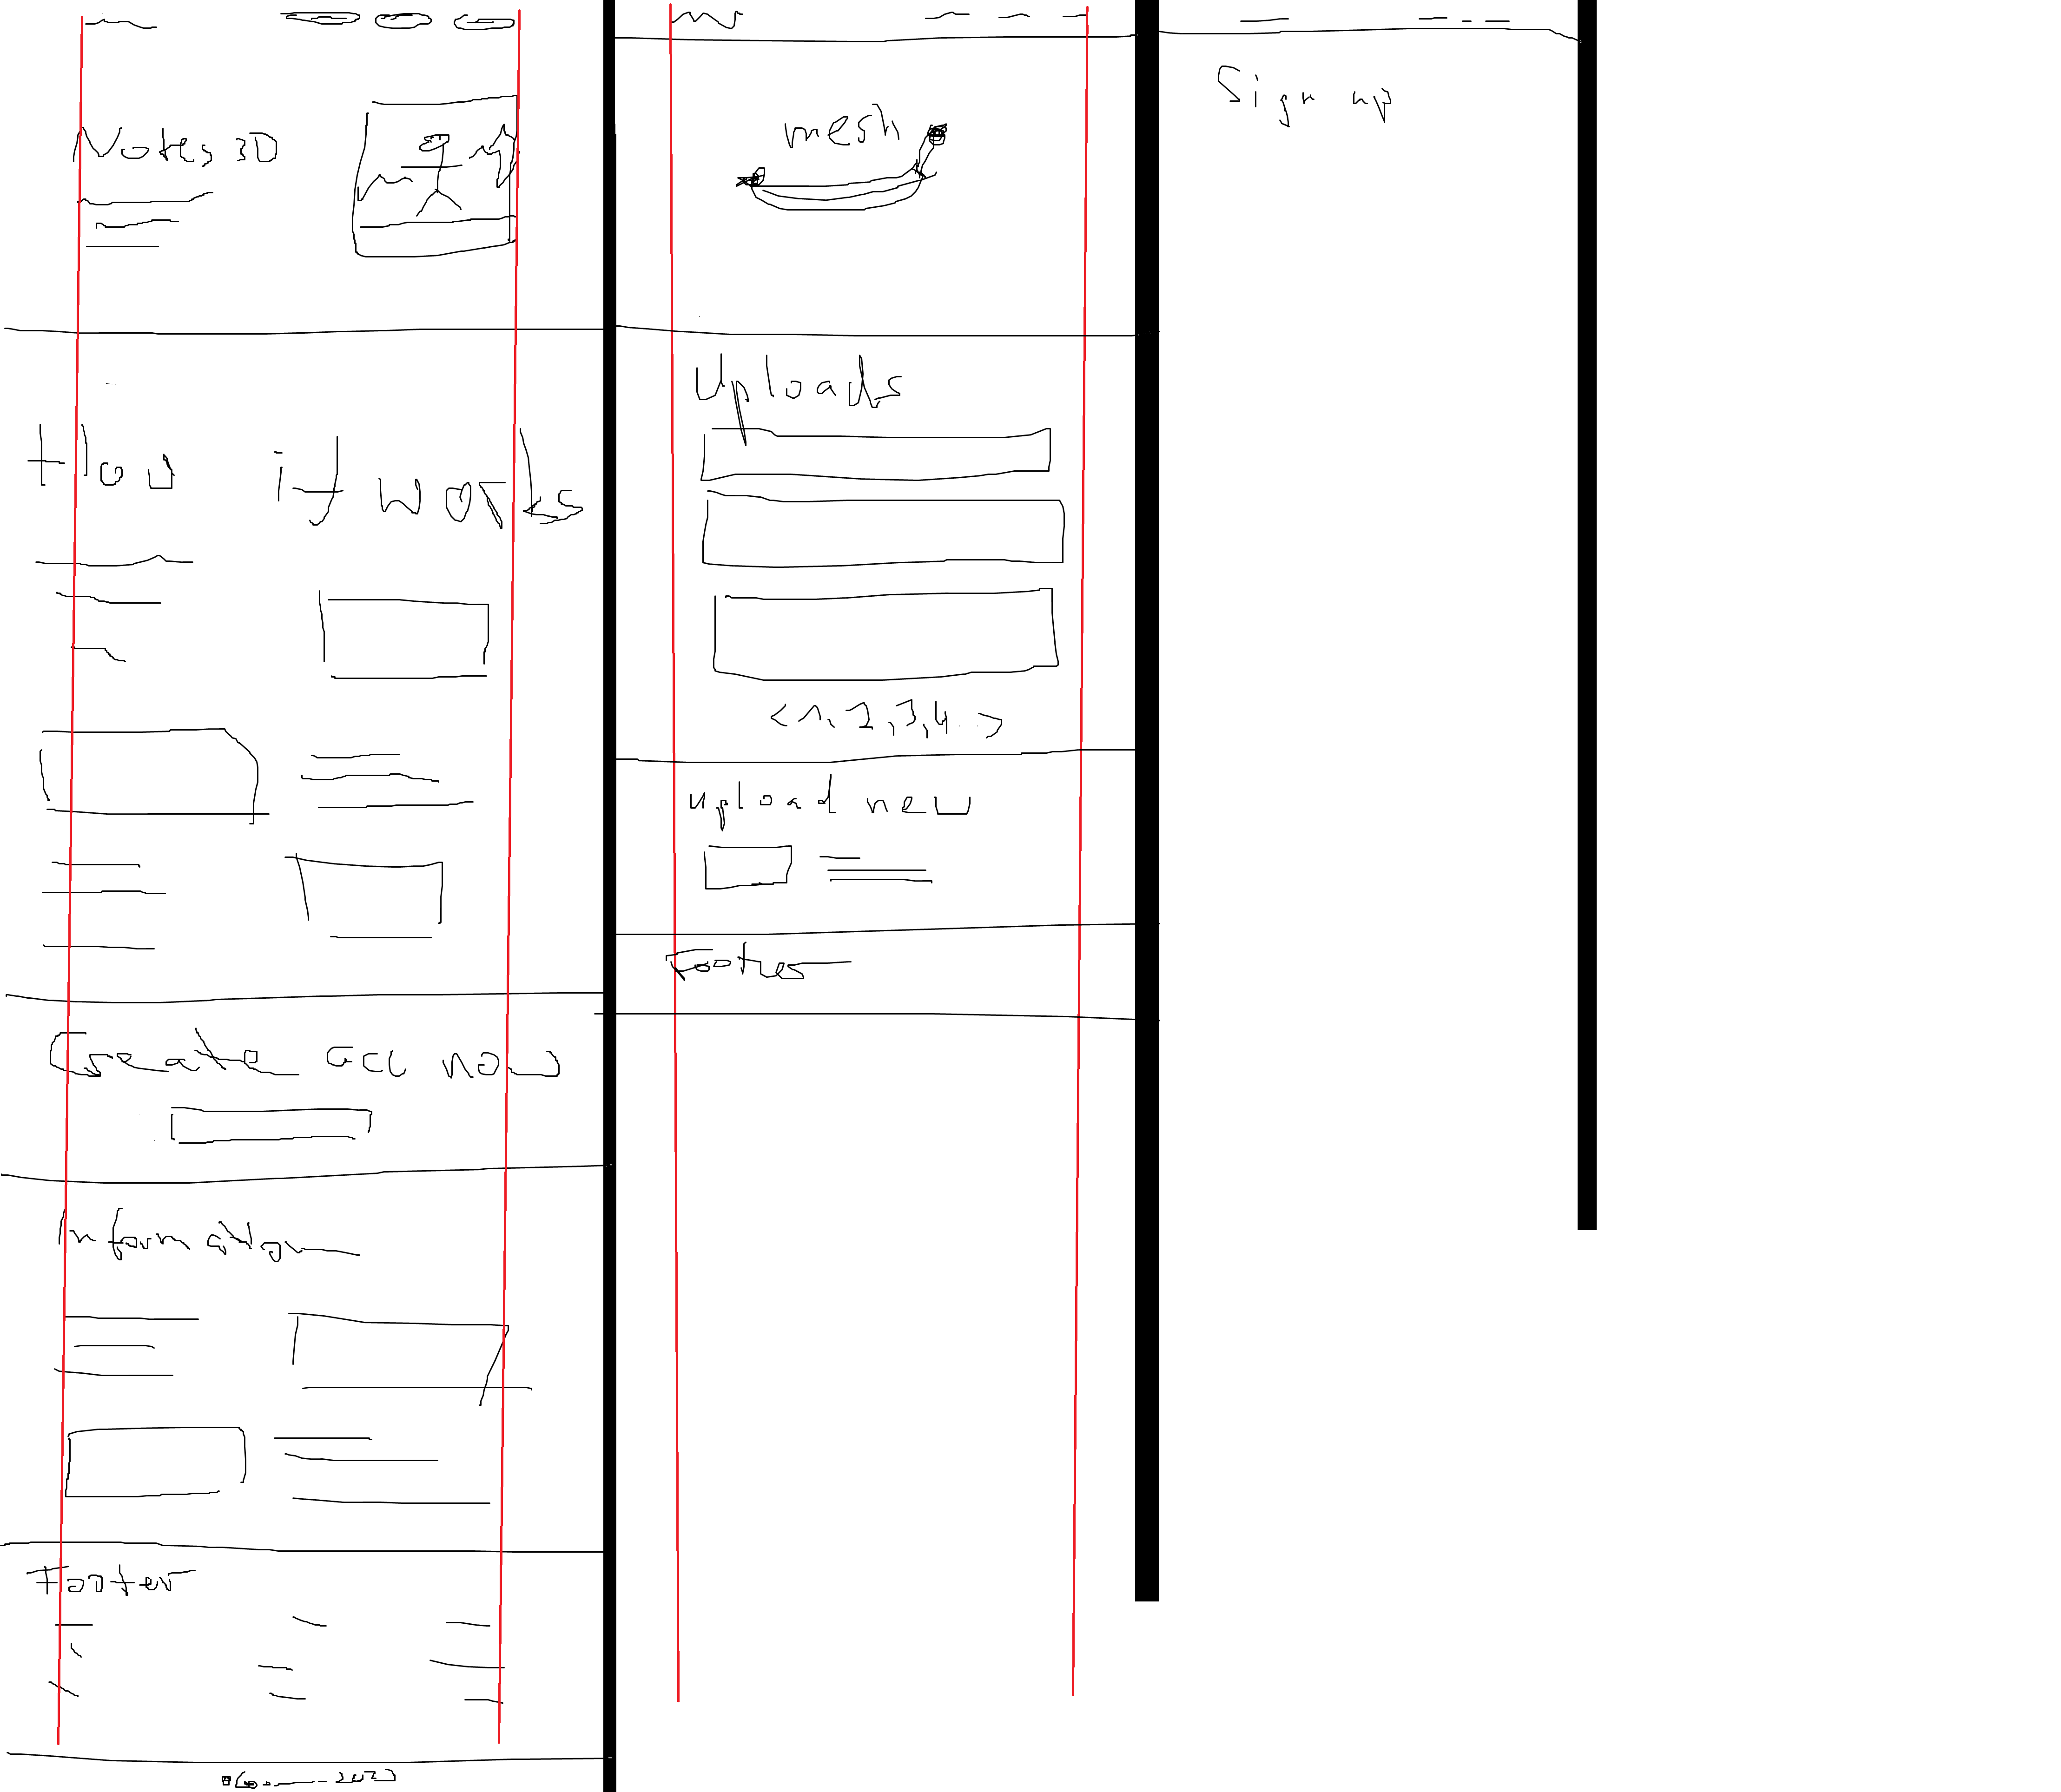 Notes 3D
How it works
Create acc now
Information
Footer
mesh
Uploads
< 1, 2, 3, 4 . . >
upload new
Footer
Sign up